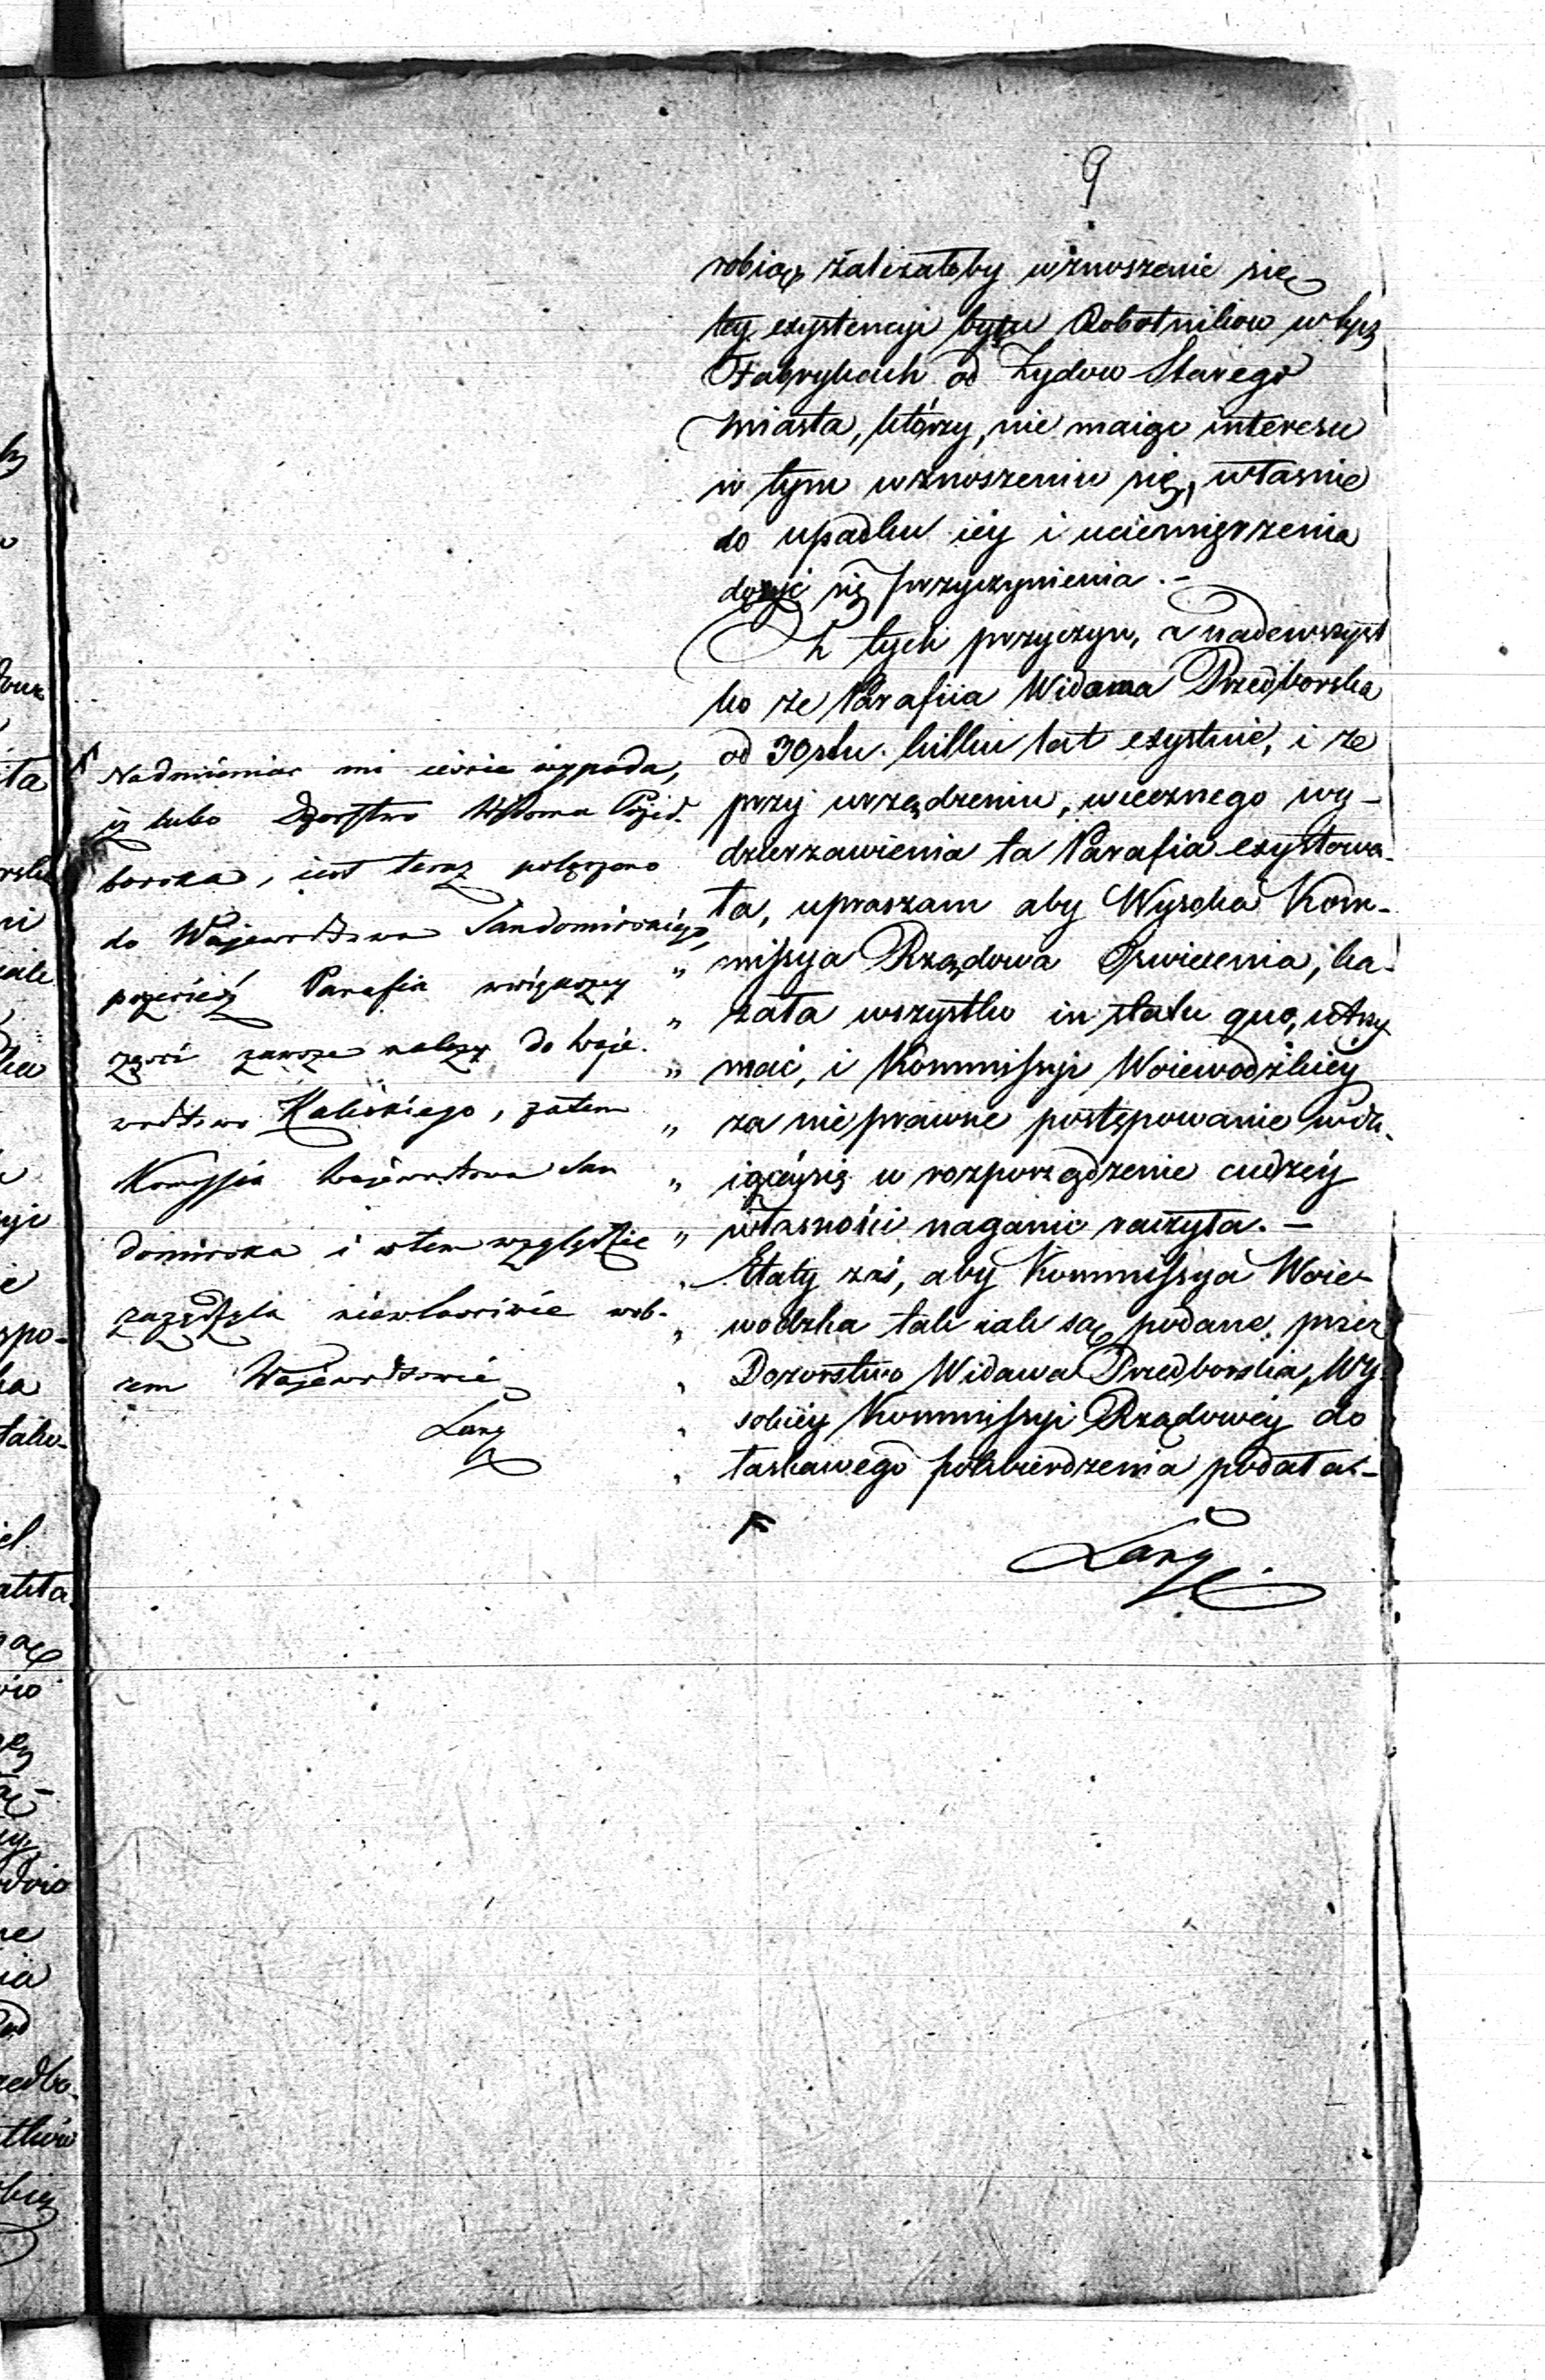 9
robiąc zaliżałoby wznoszenie się
tey exystencyi bytu Robotnikow w tych
Fabrykach od Zydow Starego
Miasta, którzy, nie maiąc interesu
w tym wznoszeniu się, własnie
do upadku iéy i uciemiężenia
dążyć się przyczynienia.-
Z tych przyczyn, a nadewszyst
ko ze Parafiia Widawa Przedborska
od 30stu. kilku lat exystuie, i ze
przy urządzeniu, wiecznego wy-
dzierzawienia ta Parafia exystowa-
ła, upraszam aby Wysoka Kom-
missya Rządowa Oswiecenia, ka-
zała wszystko in statu quo, utrzy
mać, i Kommissyi Woiewodzkiey
za nie prawne postępowanie wda-
iącéy się w rozporządzenie cudzéy
własności naganić raczyła.-
Etaty zaś, aby Kommissya Woie-
wodzka tak iak są podane, przez
Dozorstwo Widawa Przedborska, Wy
sokiéy Kommissyi Rządowéy do
łaskawego potwierdzenia podała.-
Lang
Nadmieniac mi ieszcze wypada,
iż lubo Dozorstwo Widawa Przed-
borska, iest teraz połączone
do Wojewodztwa Sandomirskiego,
przecież Parafia większey
częsci zawsze należy do Woje-
wodztwa Kaliskiego, zatem
Komyssia Wojewodzka San
domirska i w tem względzie
zarządzyła niewłasciwie w ob-
cem Wojewodztwie
Lang